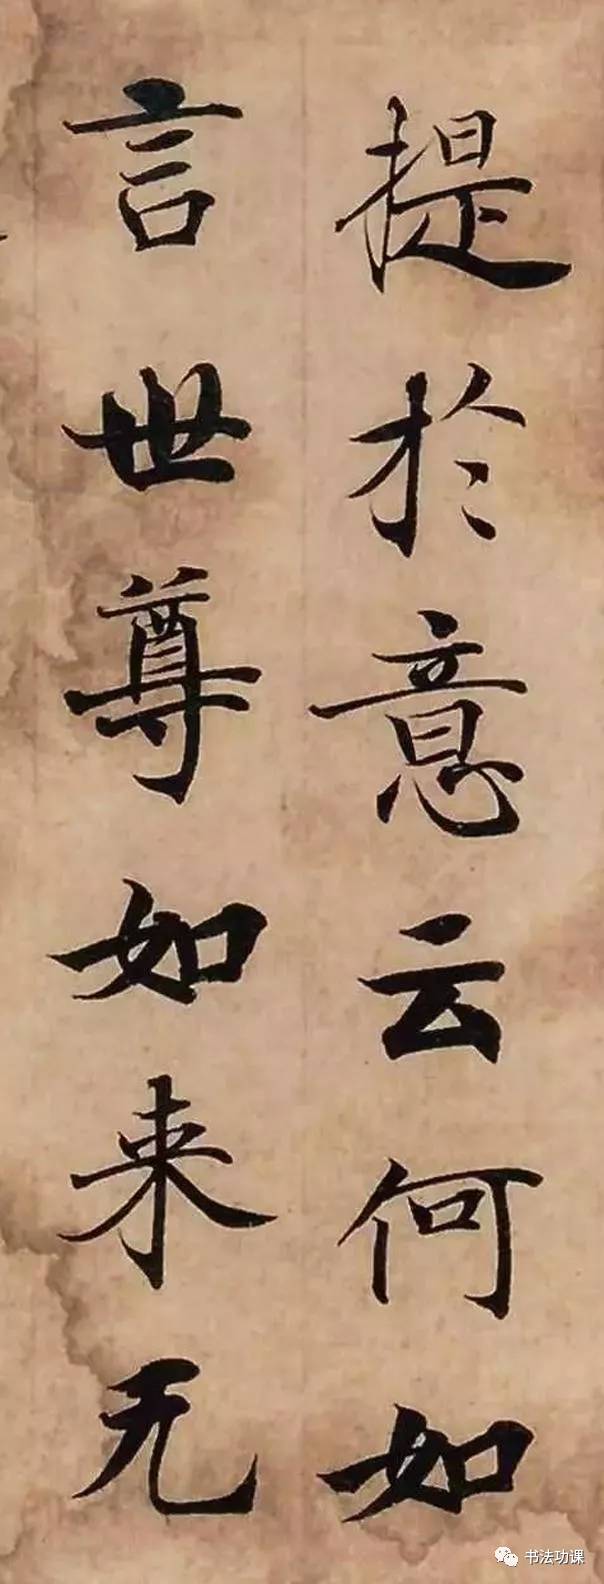 提於意云何如
言世尊如来无
书法功课